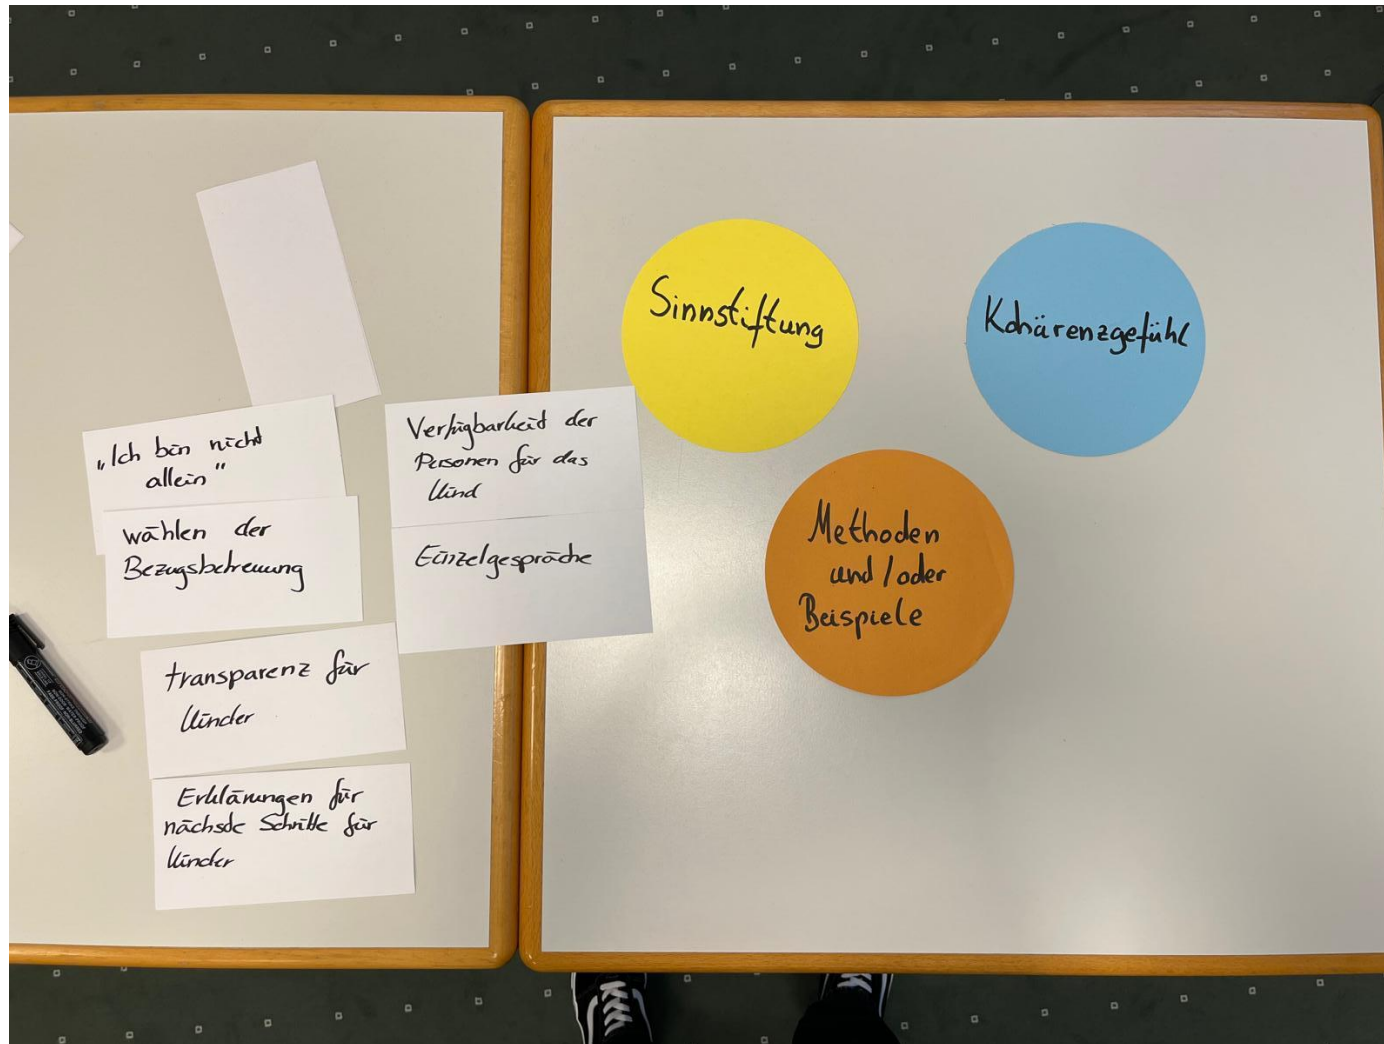 „Ich bin nicht
allein"
wählen der
Bezugsbetreuung
transparenz für
Kinder
Erklärungen für
nächste Schritte für
Kinder
Verfügbarkeit der
Personen für das
Kind
Einzelgespräche
Sinnstiftung
Kohärenzgefühl
Methoden
und / oder
Beispiele